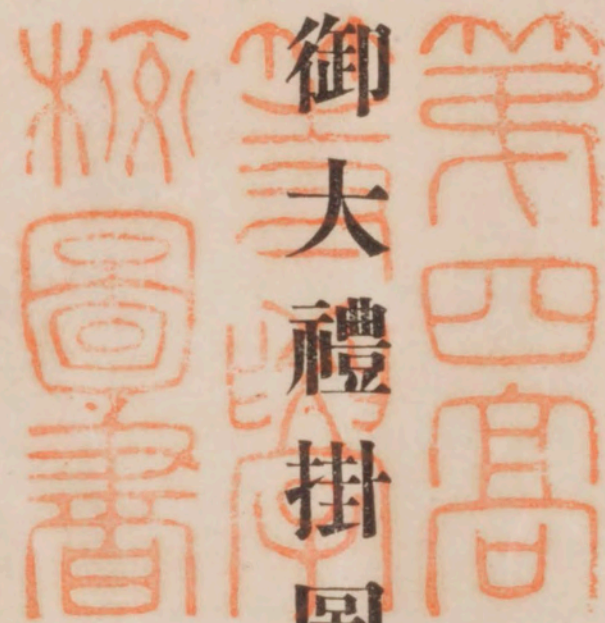 御大禮掛圖
第四高
等學
校圖書